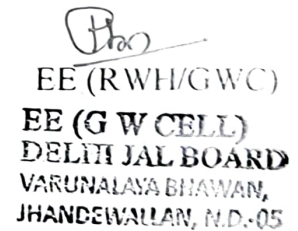 EE (RWH/GWC)
EE (G W CELL)
DELHI JAL BOARD
VARUNALAYA BHAWAN,
JHANDEWALLAN, N.D.-05